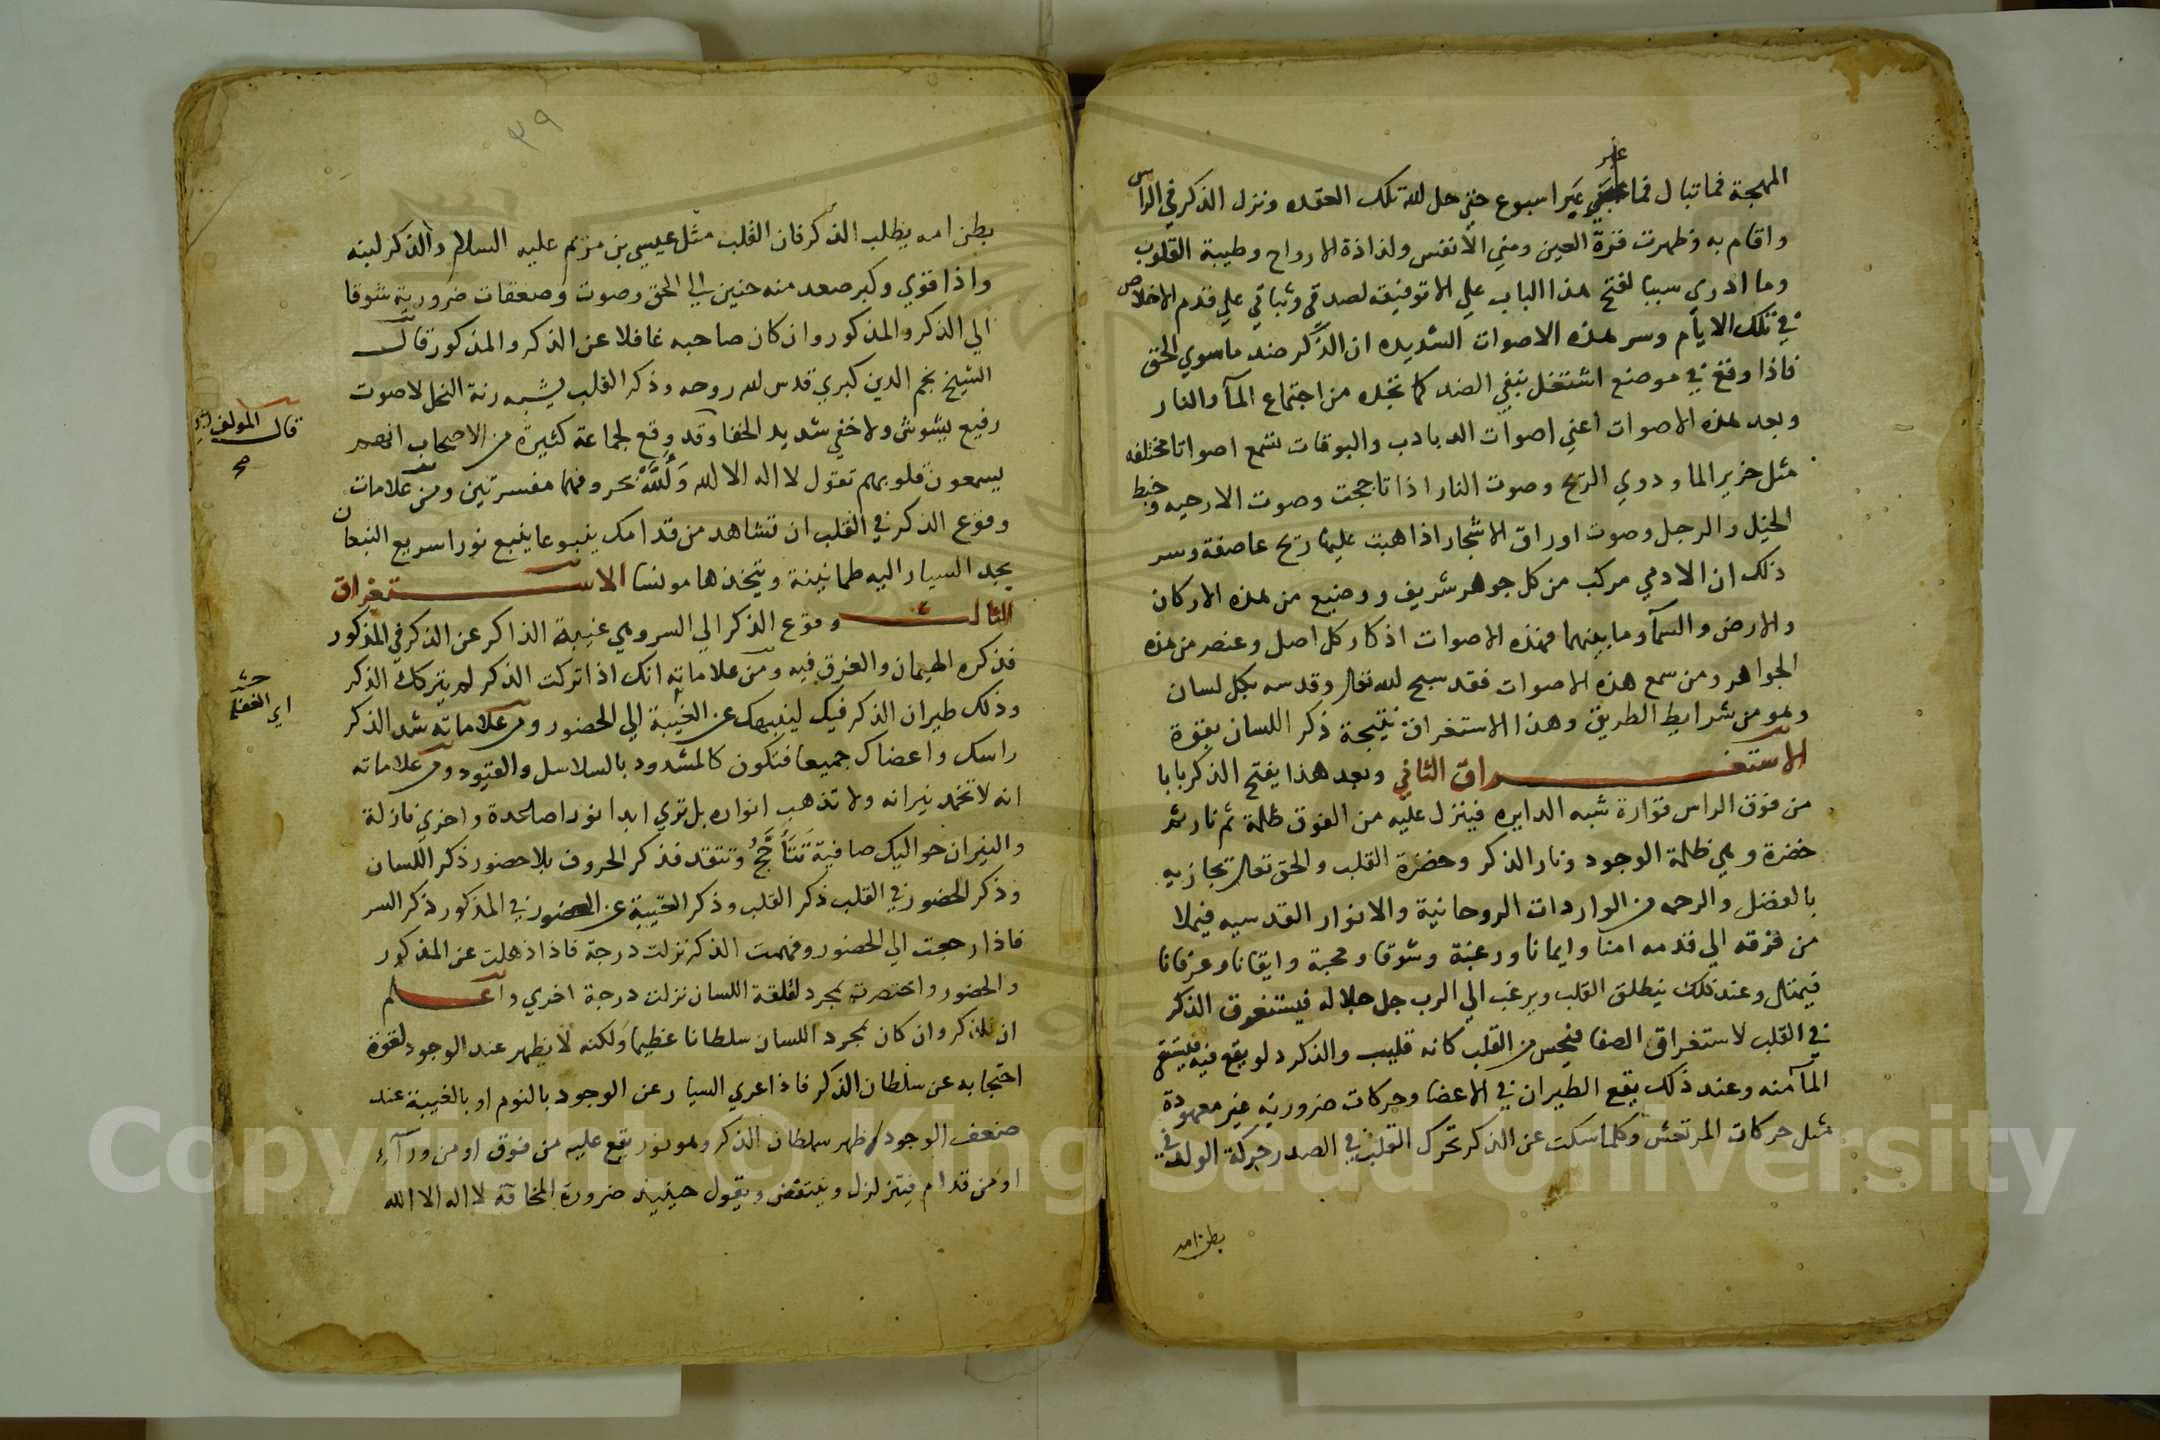 المهجة فما تبال فما غبر غير اسبوع حتي حل لله تلك العقده ونزل الذكر في الراس
واقام به وظهرت قرة العين ومني الانفس ولذاذة الارواح وطيبة القلوب
وما ادري سببا لفتح هذا الباب علي الا توفيقه لصدقي وثباتي علي قدم الاخلاص
في تلك الايام وسر هذه الاصوات الشديده ان الذكر ضد ماسوي الحق
فاذا وقع في موضع اشتغل بنفي الضد كما تجده من اجتماع المآ والنار
وبعد هذه الاصوات اعني اصوات الدبادب والبوقات تسمع اصواتا مختلفه
مثل خرير الما ودوي الريح وصوت النار اذا تاججت وصوت الارحيه وخبط
الخيل والرجل وصوت اوراق الاشجار اذا هبت عليها ريح عاصفة وسر
ذلك ان الادمي مركب من كل جوهر شريف ووضيع من هذه الاركان
والارض والسمآ وما بينهما فهذه الاصوات اذكار كل اصل وعنصر من هذه
الجواهر ومن سمع هذه الاصوات فقد سبح لله تعالى وقدسه بكل لسان
وهو من شرايط الطريق وهذا الاستغراق نتيجة ذكر اللسان بقوة
الاستغراق الثاني وبعد هذا يفتح الذكر بابا
من فوق الراس قوارة شبه الدايره فينزل عليه من الفوق ظلمة ثم نار ثم
خضرة وهي ظلمة الوجود ونار الذكر وخضرة القلب والحق تعالى يجازيه
بالفضل والرحمه من الواردات الروحانية والانوار القدسيه فيملا
من فرقه الي قدمه امنا وايمانا ورغبة وشوقا ومحبة وايقانا وعرفانا
فيمتلي وعند تلك ينطلق القلب ويرغب الي الرب جل جلاله فيستغرق الذكر
في القلب لاستغراق الصفا فيحس من القلب كانه قليب والذكر دلو يقع فيه فيستقي
المآ منه وعند ذلك يقع الطيران في الاعضا وحركات ضروريه غير معهودة
مثل حركات المرتعش وكلما سكت عن الذكر تحرك القلب في الصدر حركة الولد في
بطن امه
٣٩
بطن امه يطلب الذكر فان القلب مثل عيسي بن مريم عليه السلام والذكر لبنه
واذا قوي وكبر صعد منه حنين الي الحق وصوت وصعقات ضرورية شوقا
الي الذكر والمذكور وان كان صاحبه غافلا عن الذكر والمذكور قال
الشيخ نجم الدين كبري قدس لله روحه وذكر القلب يشبه رنة النحل لا صوت
رفيع يشوش ولا خفي شديد الخفا وقد وقع لجماعة كثيرة من الاصحاب انهم
يسمعون قلوبهم تقول لا اله الا لله وَلُلَّهْ بحروفها مفسرتين ومن علامات
وقوع الذكر في القلب ان تشاهد من قدامك ينبوعا ينبع نورا سريع النبعان
يجد السيار اليه طمانينة ويتخذها مونسا الاستغراق
الثالث وقوع الذكر الي السر وهي غيبة الذاكر عن الذكر في المذكور
فذكره الهيمان والغرق فيه ومن علاماته انك اذا تركت الذكر لم يتركك الذكر
وذلك طيران الذكر فيك لينبهك عن الغيبة الي الحضور ومن علاماته شد الذكر
راسك واعضاك جميعا فتكون كالمشدود بالسلاسل والقيود ومن علاماته
انه لا تخمد نيرانه ولا تذهب انواره بل تري ابدا نورا صاعدة واخري نازلة
والنيران حواليك صافية تَتَأَجَّجُ وتتقد فذكر الحروف بلا حضور ذكر اللسان
وذكر الحضور في القلب ذكر القلب وذكر الغيبة عن الحضور في المذكور ذكر السر
فاذا رجعت الي الحضور وفهمت الذكر نزلت درجة فاذا ذهلت عن المذكور
والحضور واختصرت بمجرد لقلقة اللسان نزلت درجة اخري واعلم
ان للذكر وان كان بمجرد اللسان سلطانا عظيما ولكنه لا يظهر عند الوجود لقوة
احتجابه عن سلطان الذكر فاذا عري السيار عن الوجود بالنوم او بالغيبة عند
ضعف الوجود ظهر سلطان الذكر وهو نور يقع عليه من فوق او من ورآء
او من قدام فيتزلزل وينتفض ويقول حينيذ ضرورة المخافة لا اله الا الله
قال المولف
صح
اي
Copyright © King Saud University